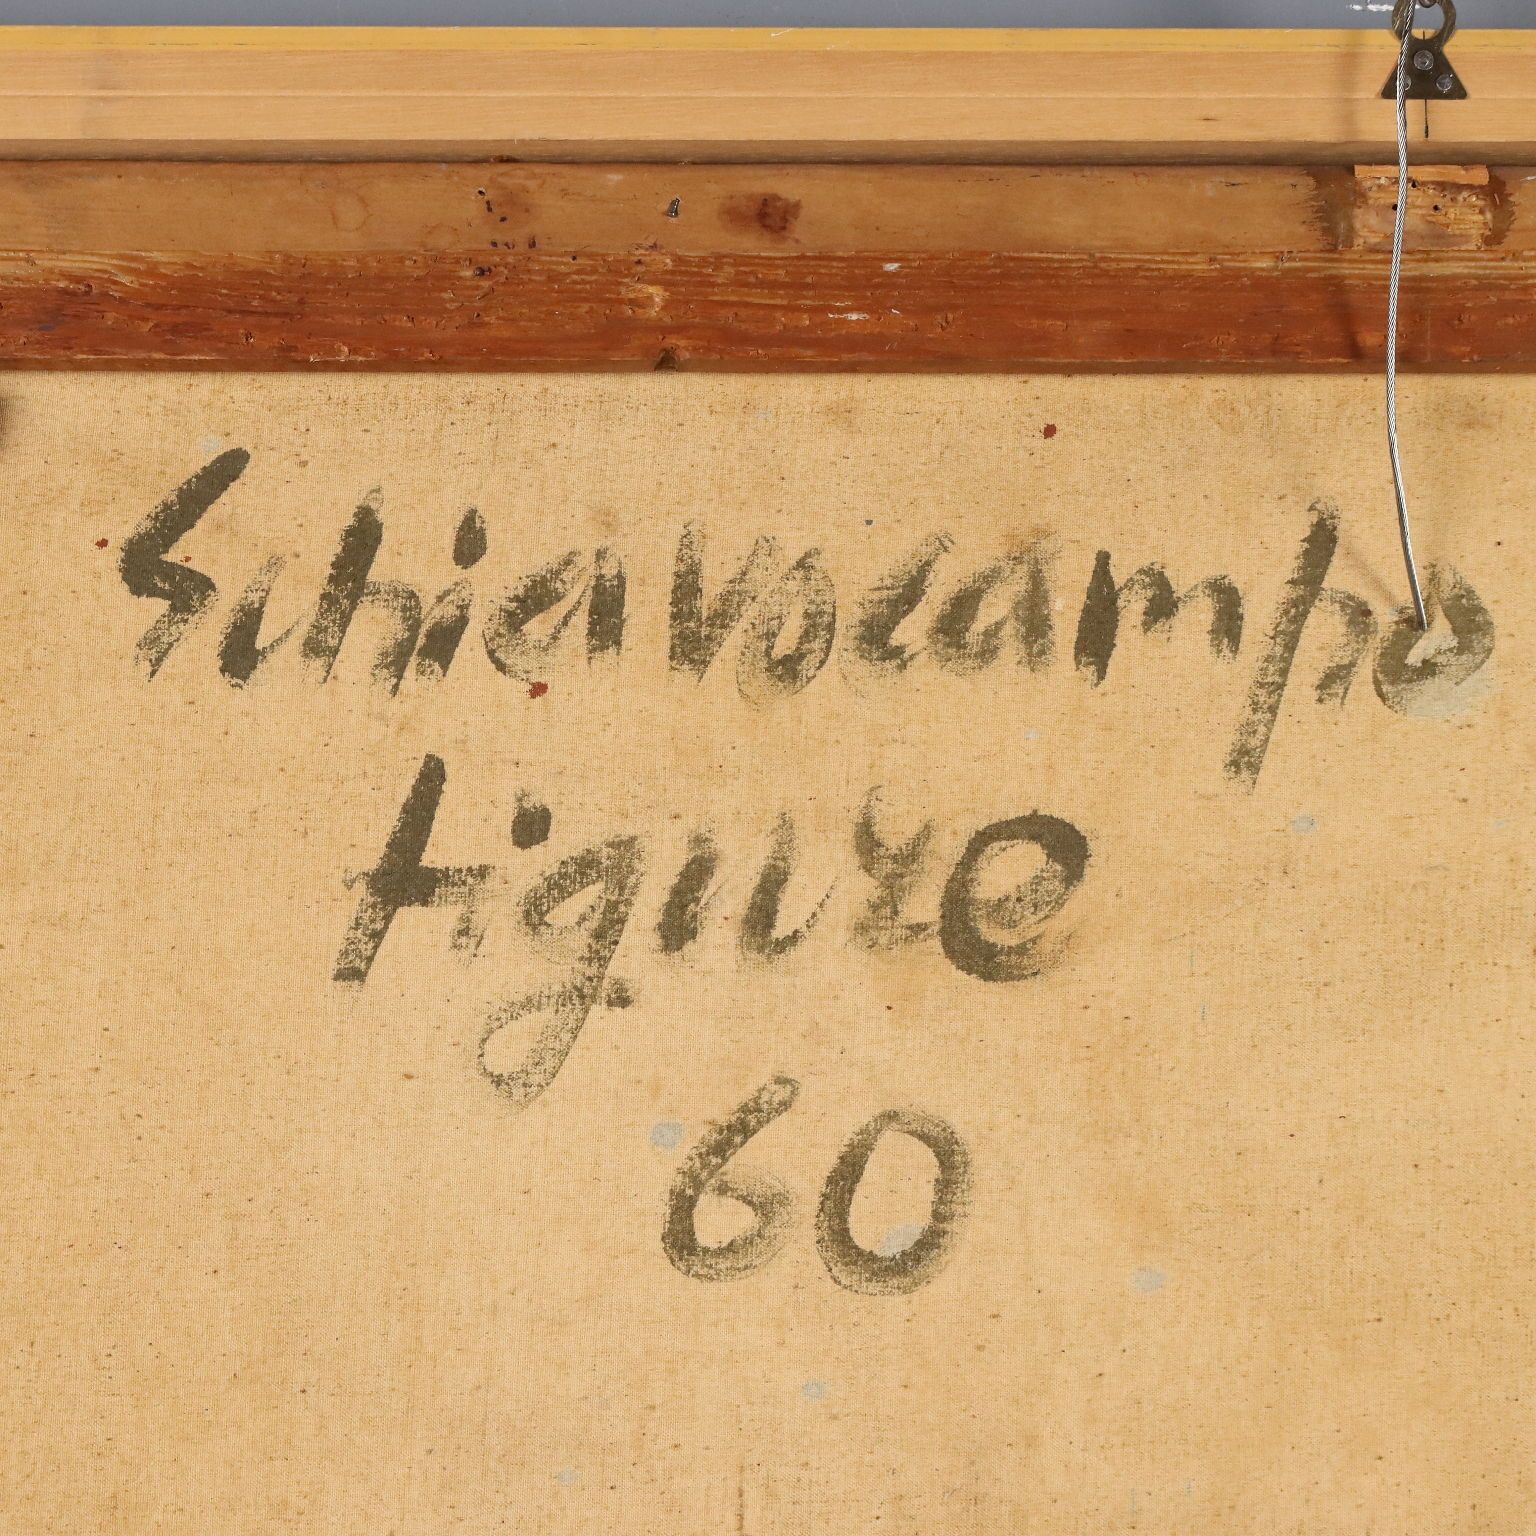 Schiavocampo
figure
60